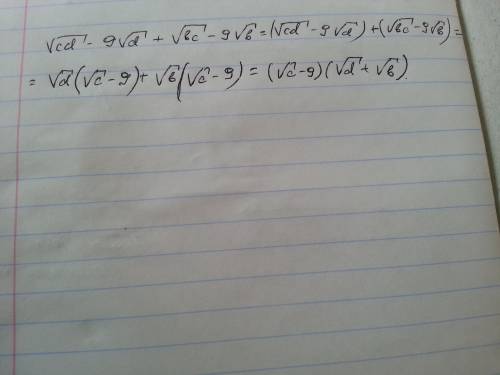 √cd - 9√d + √bc - 9√b = (√cd - 9√d) + (√bc - 9√b) =
= √d(√c - 9) + √b(√c - 9) = (√c - 9)(√d + √b)